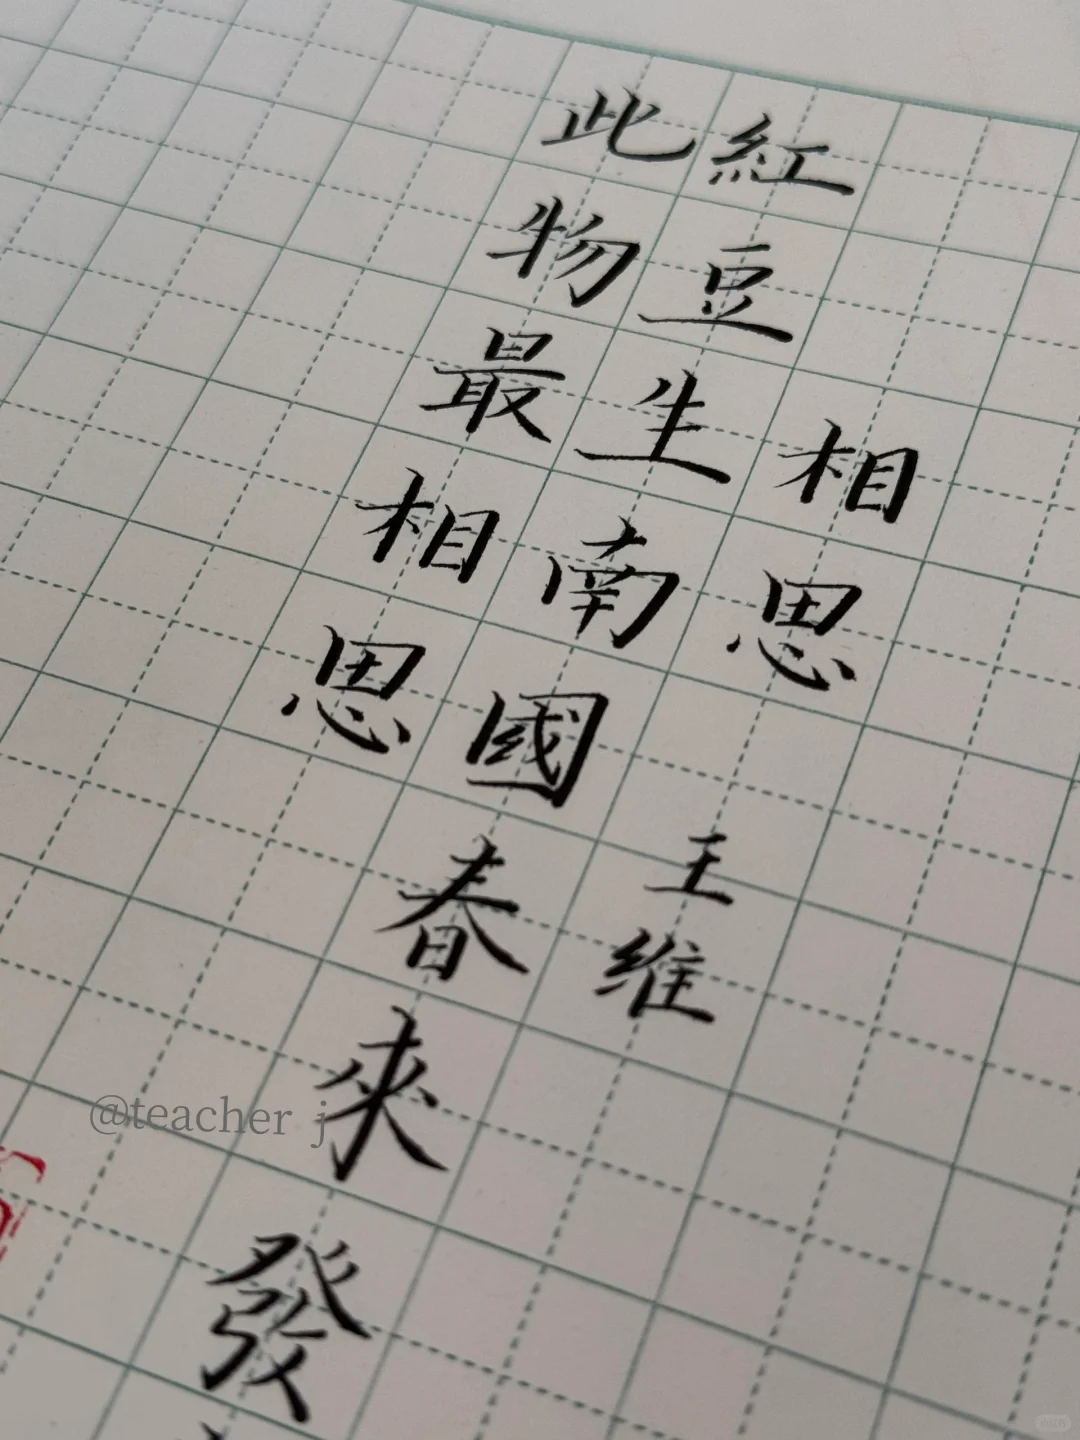 相思
王维
紅豆生南國春來發
此物最相思
@teacher j